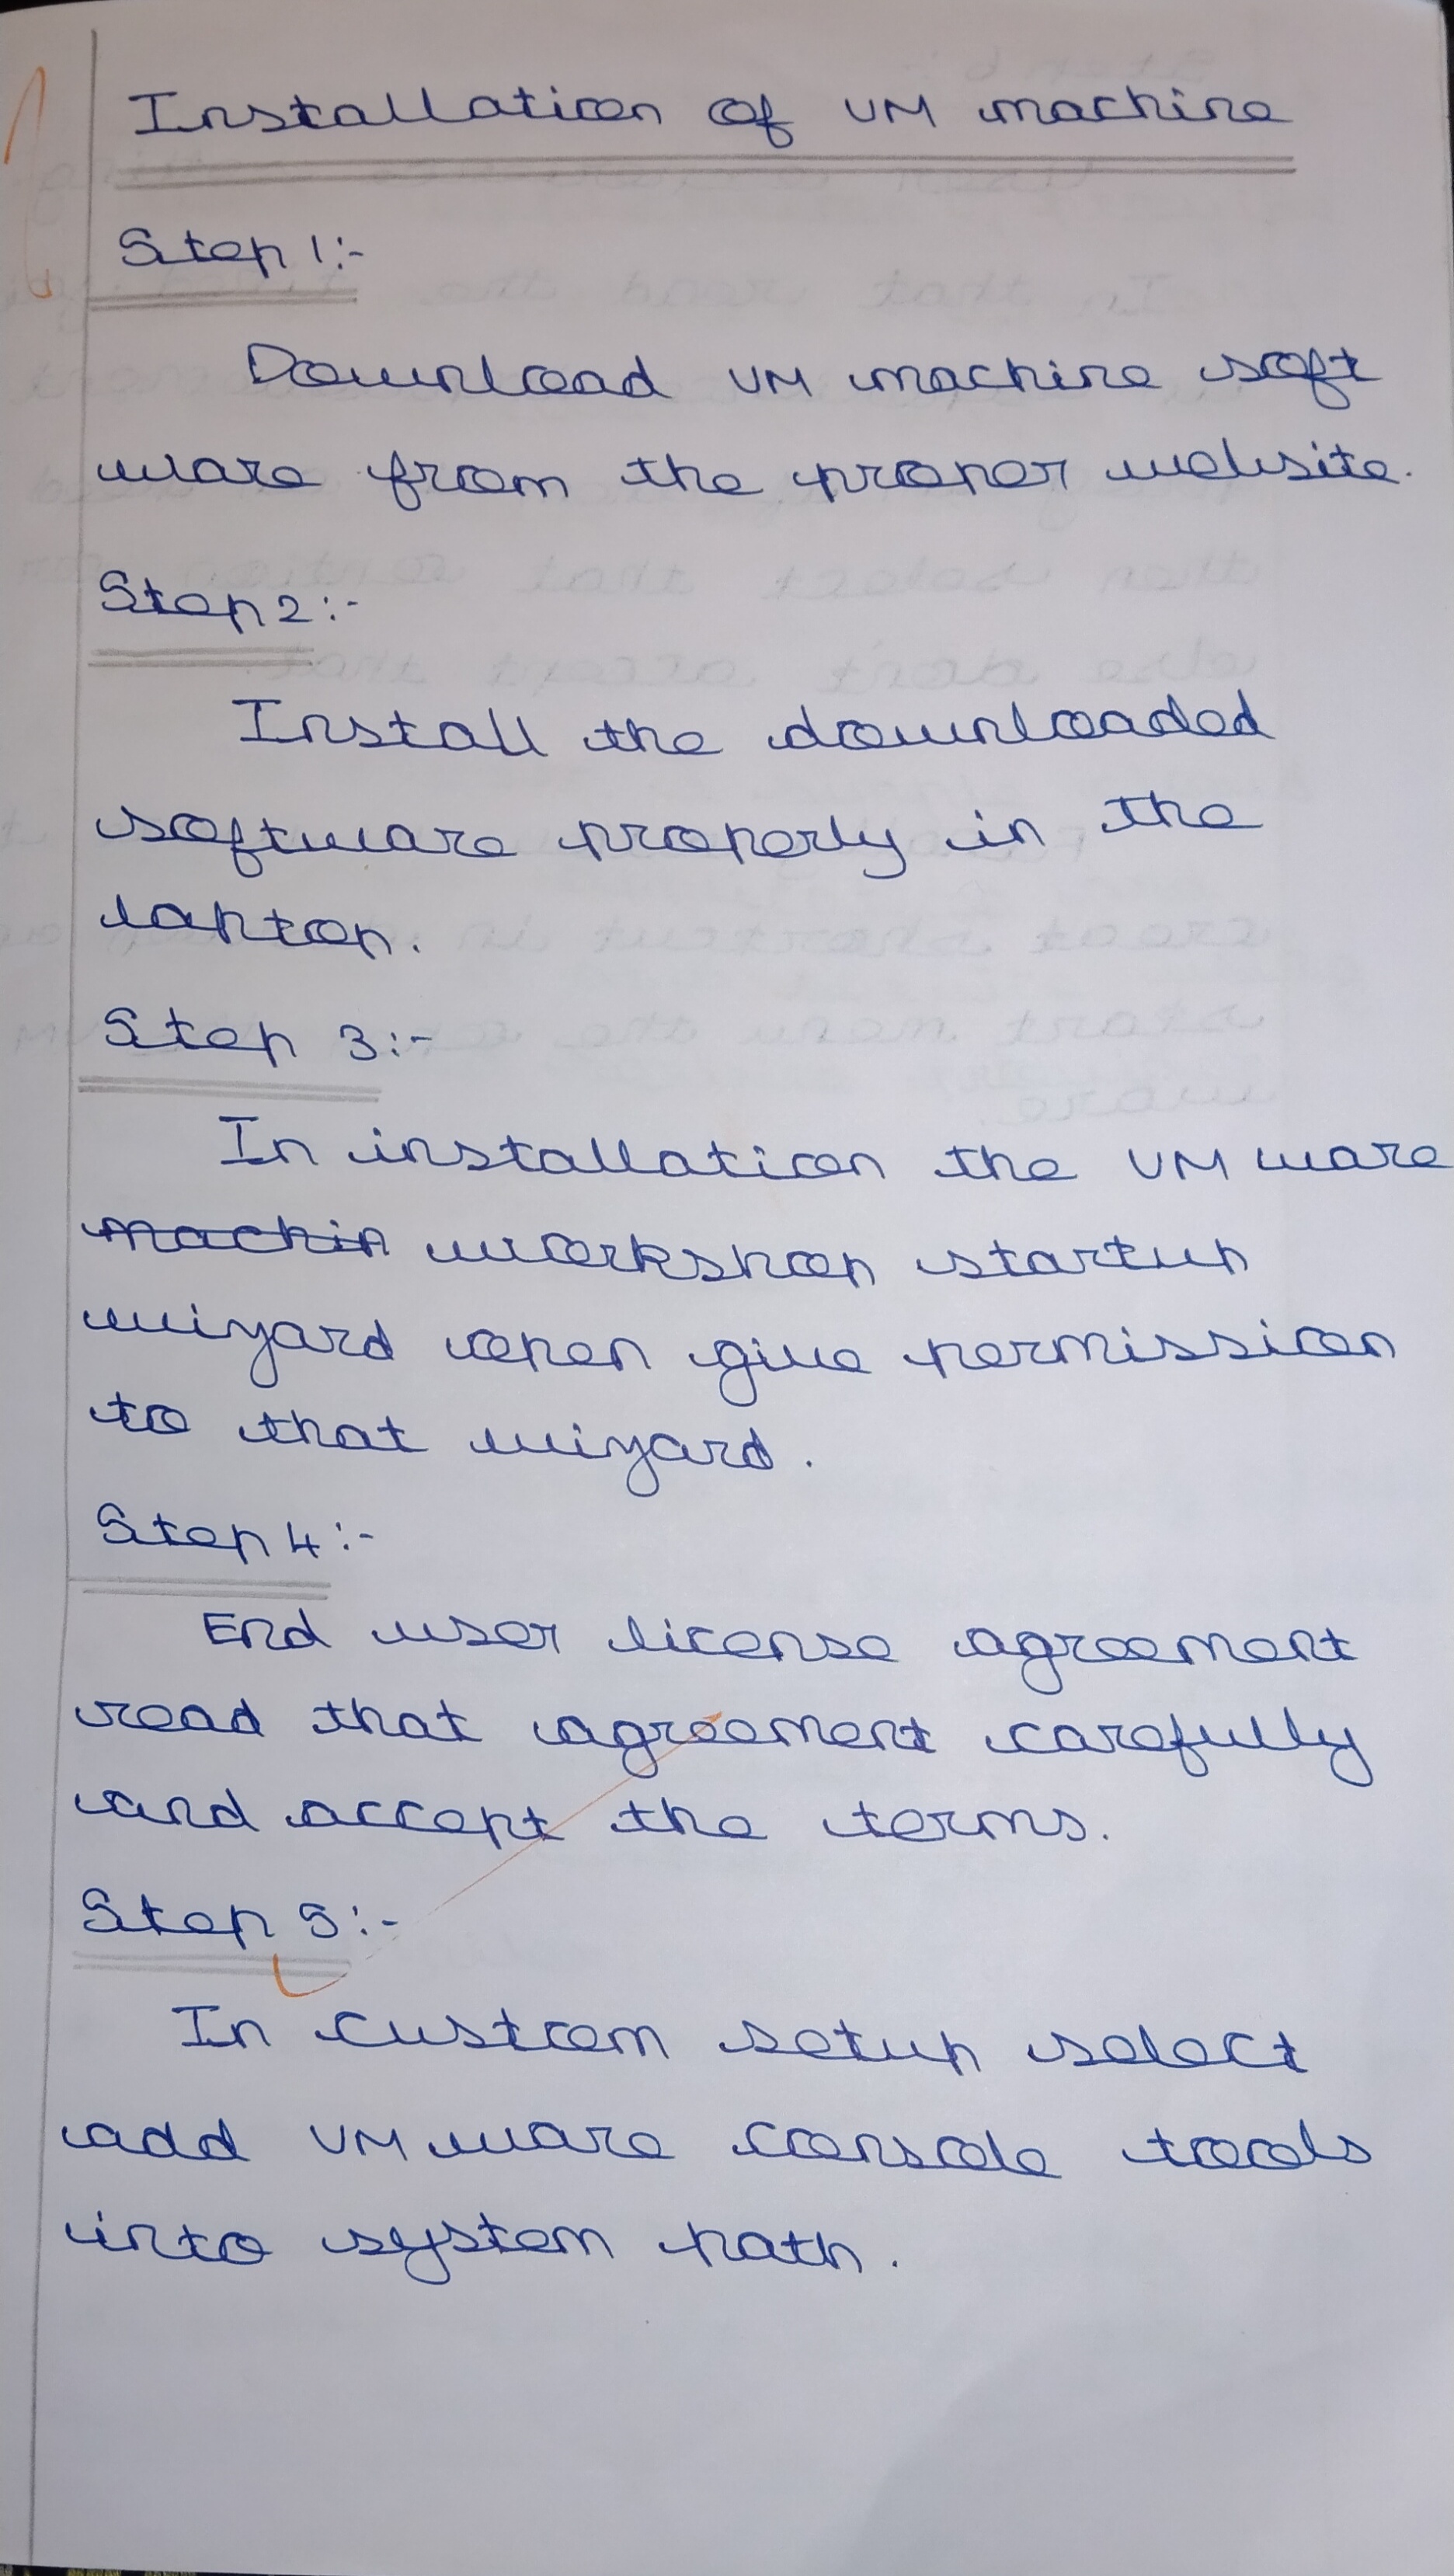 Installation of VM machine
Step 1:-
Download VM machine soft
ware from the proper website.
Step 2:-
Install the downloaded
software properly in the
laptop.
Step 3:-
In installation the VM ware
machin workshop startup
wizard open give permission
to that wizard.
Step 4:-
End user license agreement
read that agreement carefully
and accept the terms.
Step 5:-
In custom setup select
add VM ware console tools
into system path.